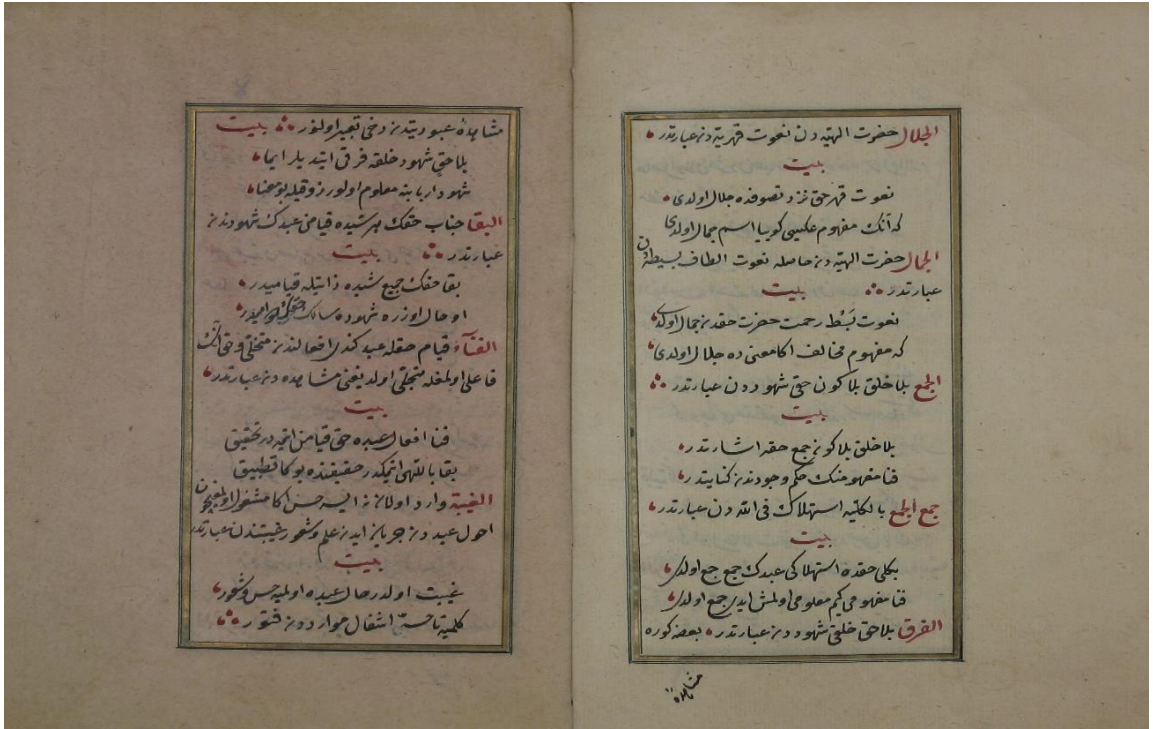 الجلال حضرت الهیه دن نعوت قهریه دن عبارتدر
بیت
نعوت قهر حق نزد تصوفده جلال اولدی
که آنك مفهوم عکسی کویا اسم جمال اولدی
الجمال حضرت الهیه دن حاصله نعوت الطاف بسیطه دن
عبارتدر بیت
نعوت بَسْط رحمت حضرت حقدن جمال اولدی
که مفهوم مخالف اکا معنی ده جلال اولدی
الجمع بلا خلق بلا کون حق شهود دن عبارتدر
بیت
بلا خلق بلا کون جمع حقه اشارتدر
فنا مفهومنك حکم وجودندن کنایتدر
جمع الجمع بالکلیه استهلاك فی الله دن عبارتدر
بیت
بکلی حقده استهلاکی عبدك جمع جمع اولدی
فنا مفهومی کیم معلومی اولمش ایدی جمع اولدی
الفرق بلا حق خلقی شهود دن عبارتدر بعضه کوره
مشاهدهٔ
مشاهدهٔ عبودیتدن دخی تعبیر اولنور بیت
بلا حق شهود خلقه فرق ایتدیلر ایما
شهود اربابنه معلوم اولور ذوقیله بو معنا
البقا جناب حقك هر شیده قیامن عبدك شهودندن
عبارتدر بیت
بقا حقك جمیع شیده ذاتیله قیامیدر
او حال اوزره شهوده سالك
الفناء قیام حقله عبد کندی افعالندن متخلی و حق آنك
فاعلی اولمغله متجلی اولدیغنی مشاهده دن عبارتدر
بیت
فنا افعال عبده حق قیامن اتمه در تحقیق
بقا بالله اتمکدر حقیقتده بو کا تطبیق
الغیبة وارد اولان نه ایسه حس اکا مشغول اولدیغیچون
احول عبد دن جریان ایدن علم و شعور غیبتندن عبارتدر
بیت
غیبت اولدر حال عبده اولمیه حس و شعور
کلمیه تا حسه اشغال موارددن فتور